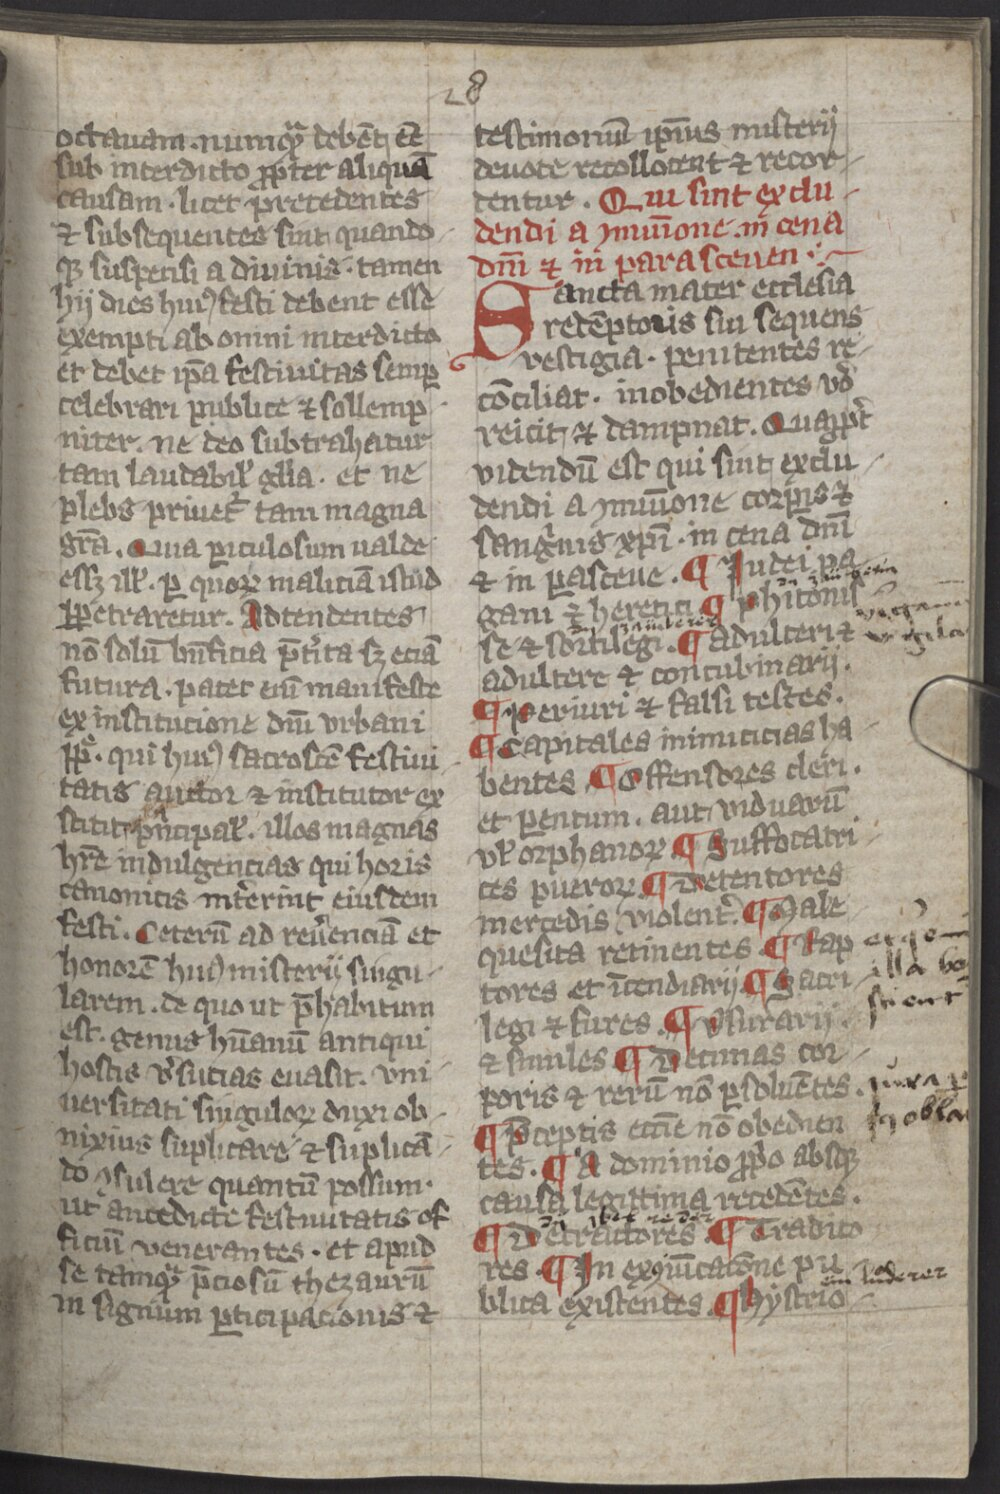 28
octauam . numqᷓ debēt eē
sub interdicto ꝓpter aliquā
causam . licet precedentes
⁊ subsequentes sint quando
qꝫ suspensi a diuinis . tamen
hij dies huiꝰ festi debent esse
exempti ab omni interdicto
et debet ip̄a festiuitas semꝑ
celebrari publice ⁊ sollemp
niter . ne deo subtrahatur
tam laudabil̓ gl̄ia . et ne
plebs priuet᷑ tam magna
gr̄a . Quia ꝑiculosum ualde
essꝫ ill̓ . ꝑ quoꝝ maliciā istud
ꝑpetraretur . Adtendentes
nō solū bn̄ficia p̄t̓ita sꝫ eciā
futura . pater eiū manifeste
ex institucione dn̄i vrbani
pp̄ͦ . qui huiꝰ sacrosc̄e festiui
tatis auctor ⁊ institutor ex
stitit p̄ncipal̓ . illos magnas
hr̄e indulgencias qui horis
canonicis int̓erint eiusdem
festi . Ceterū ad reu̓enciā et
honorē huiꝰ misterij singu
larem . de quo ut p̄habitum
est . genus hūanū antiqui
hostis v̓sucias euasit . vni
uersitati singuloꝝ duxi ob
nixius suplicare ⁊ suplicā
do ꝯsulere quantū possum .
ut antedicte festiuitatis of
ficiū venerantes . et apud
se tamqᷓ p̄ciosū thezaurū
in signum ꝑticipacionis ⁊
testimoniū ip̄ius misterij
deuote recollocent ⁊ recor
dentur . Qui sint exclu
dendi a ꝯmuīone . in cena
dn̄i ⁊ in parasceuen .
Sancta mater ecclesia
redēptoris sui sequens
vestigia . penitentes re
cōciliat . inobedientes v̓o
reicit ⁊ dampnat . Quapp̄t̓
videndū est qui sint exclu
dendi a ꝯmuīone corꝑis ⁊
sangⁱnis xp̄i . in cena dn̄i
⁊ in ꝑasceue . ¶ Judei pa
gani ⁊ heretici ¶ phitonis
se ⁊ sortilegi . ¶ adulteri ⁊
zauberer
adultere ⁊ concubinarij .
¶ Periuri ⁊ falsi testes .
¶ Capitales inimicicias ha
bentes ¶ Offensores cleri .
et ꝑentum . aut viduarū
vl̓ orphanoꝝ ¶ Suffocatri
ces pueroꝝ ¶ Detentores
mercedis violent̓ . ¶ Male
quesita retinentes ¶ Rap
tores et īcendiarij ¶ Sacri
legi ⁊ fures . ¶ Vsurarij .
⁊ similes ¶ Decimas cor
ꝑoris ⁊ rerū nō ꝑsoluētes .
¶ P̄ceptis eccīe nō obedien
tes . ¶ A dominio ꝓp̓o absqꝫ
causa legittima recedētes .
¶ Detractores . ¶ Tradito
res . ¶ In exꝯmūicatōne pu
blica existentes . ¶ hystrio
ein luderer